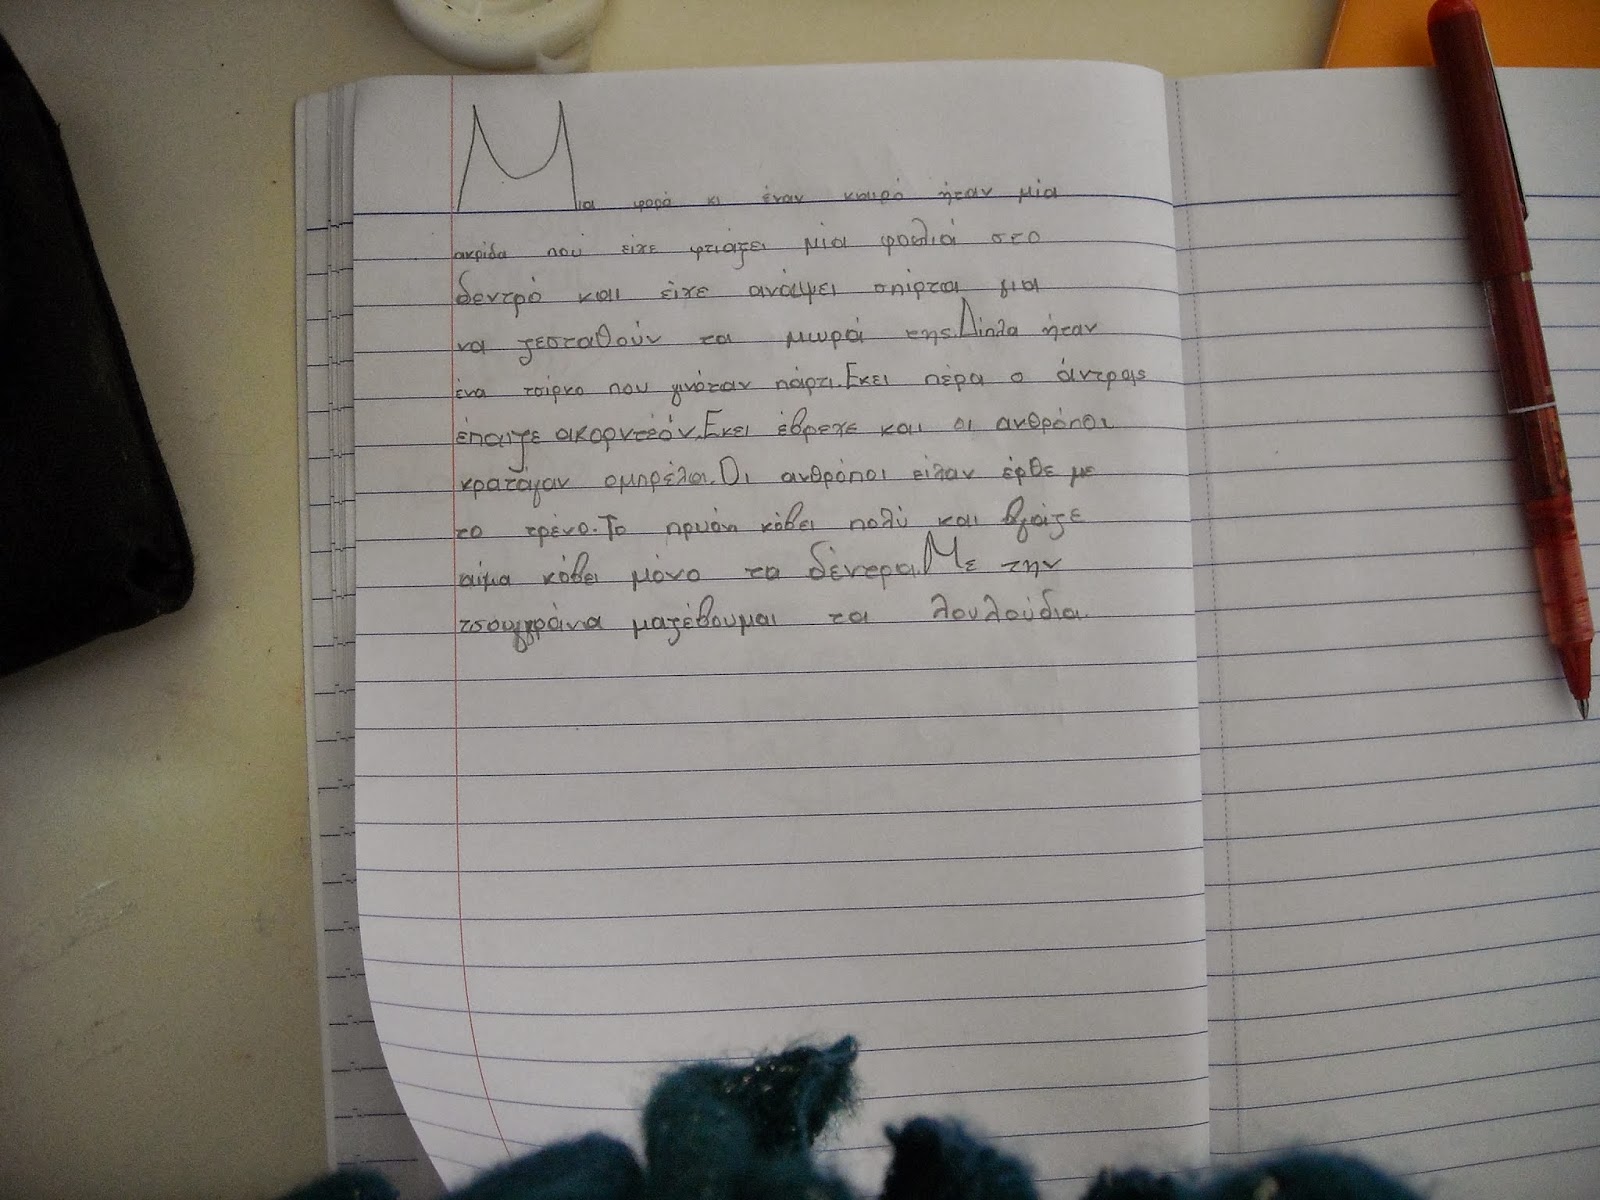 Μια φορά κι έναν καιρό ήταν μία
ακρίδα πού είχε φτιάξει μία φωλιά στο
δεντρό και είχε ανάψει σπίρτα για
να ζεσταθούν τα μωρά της.Δίπλα ήταν
ένα τσίρκο που γινόταν πάρτι.Εκει πέρα ο άντρας
έπαιζε ακορντεόν.Εκει έβρεχε και οι ανθρόποι
κρατάγαν ομπρέλα.Οι ανθρόποι είχαν έρθε με
το τρένο.Το πριόνι κόβει πολύ και βγαίζε
αίμα κόβει μόνο τα δέντρα.Με την
τσουγγράνα μαζέβουμαι τα λουλούδια.